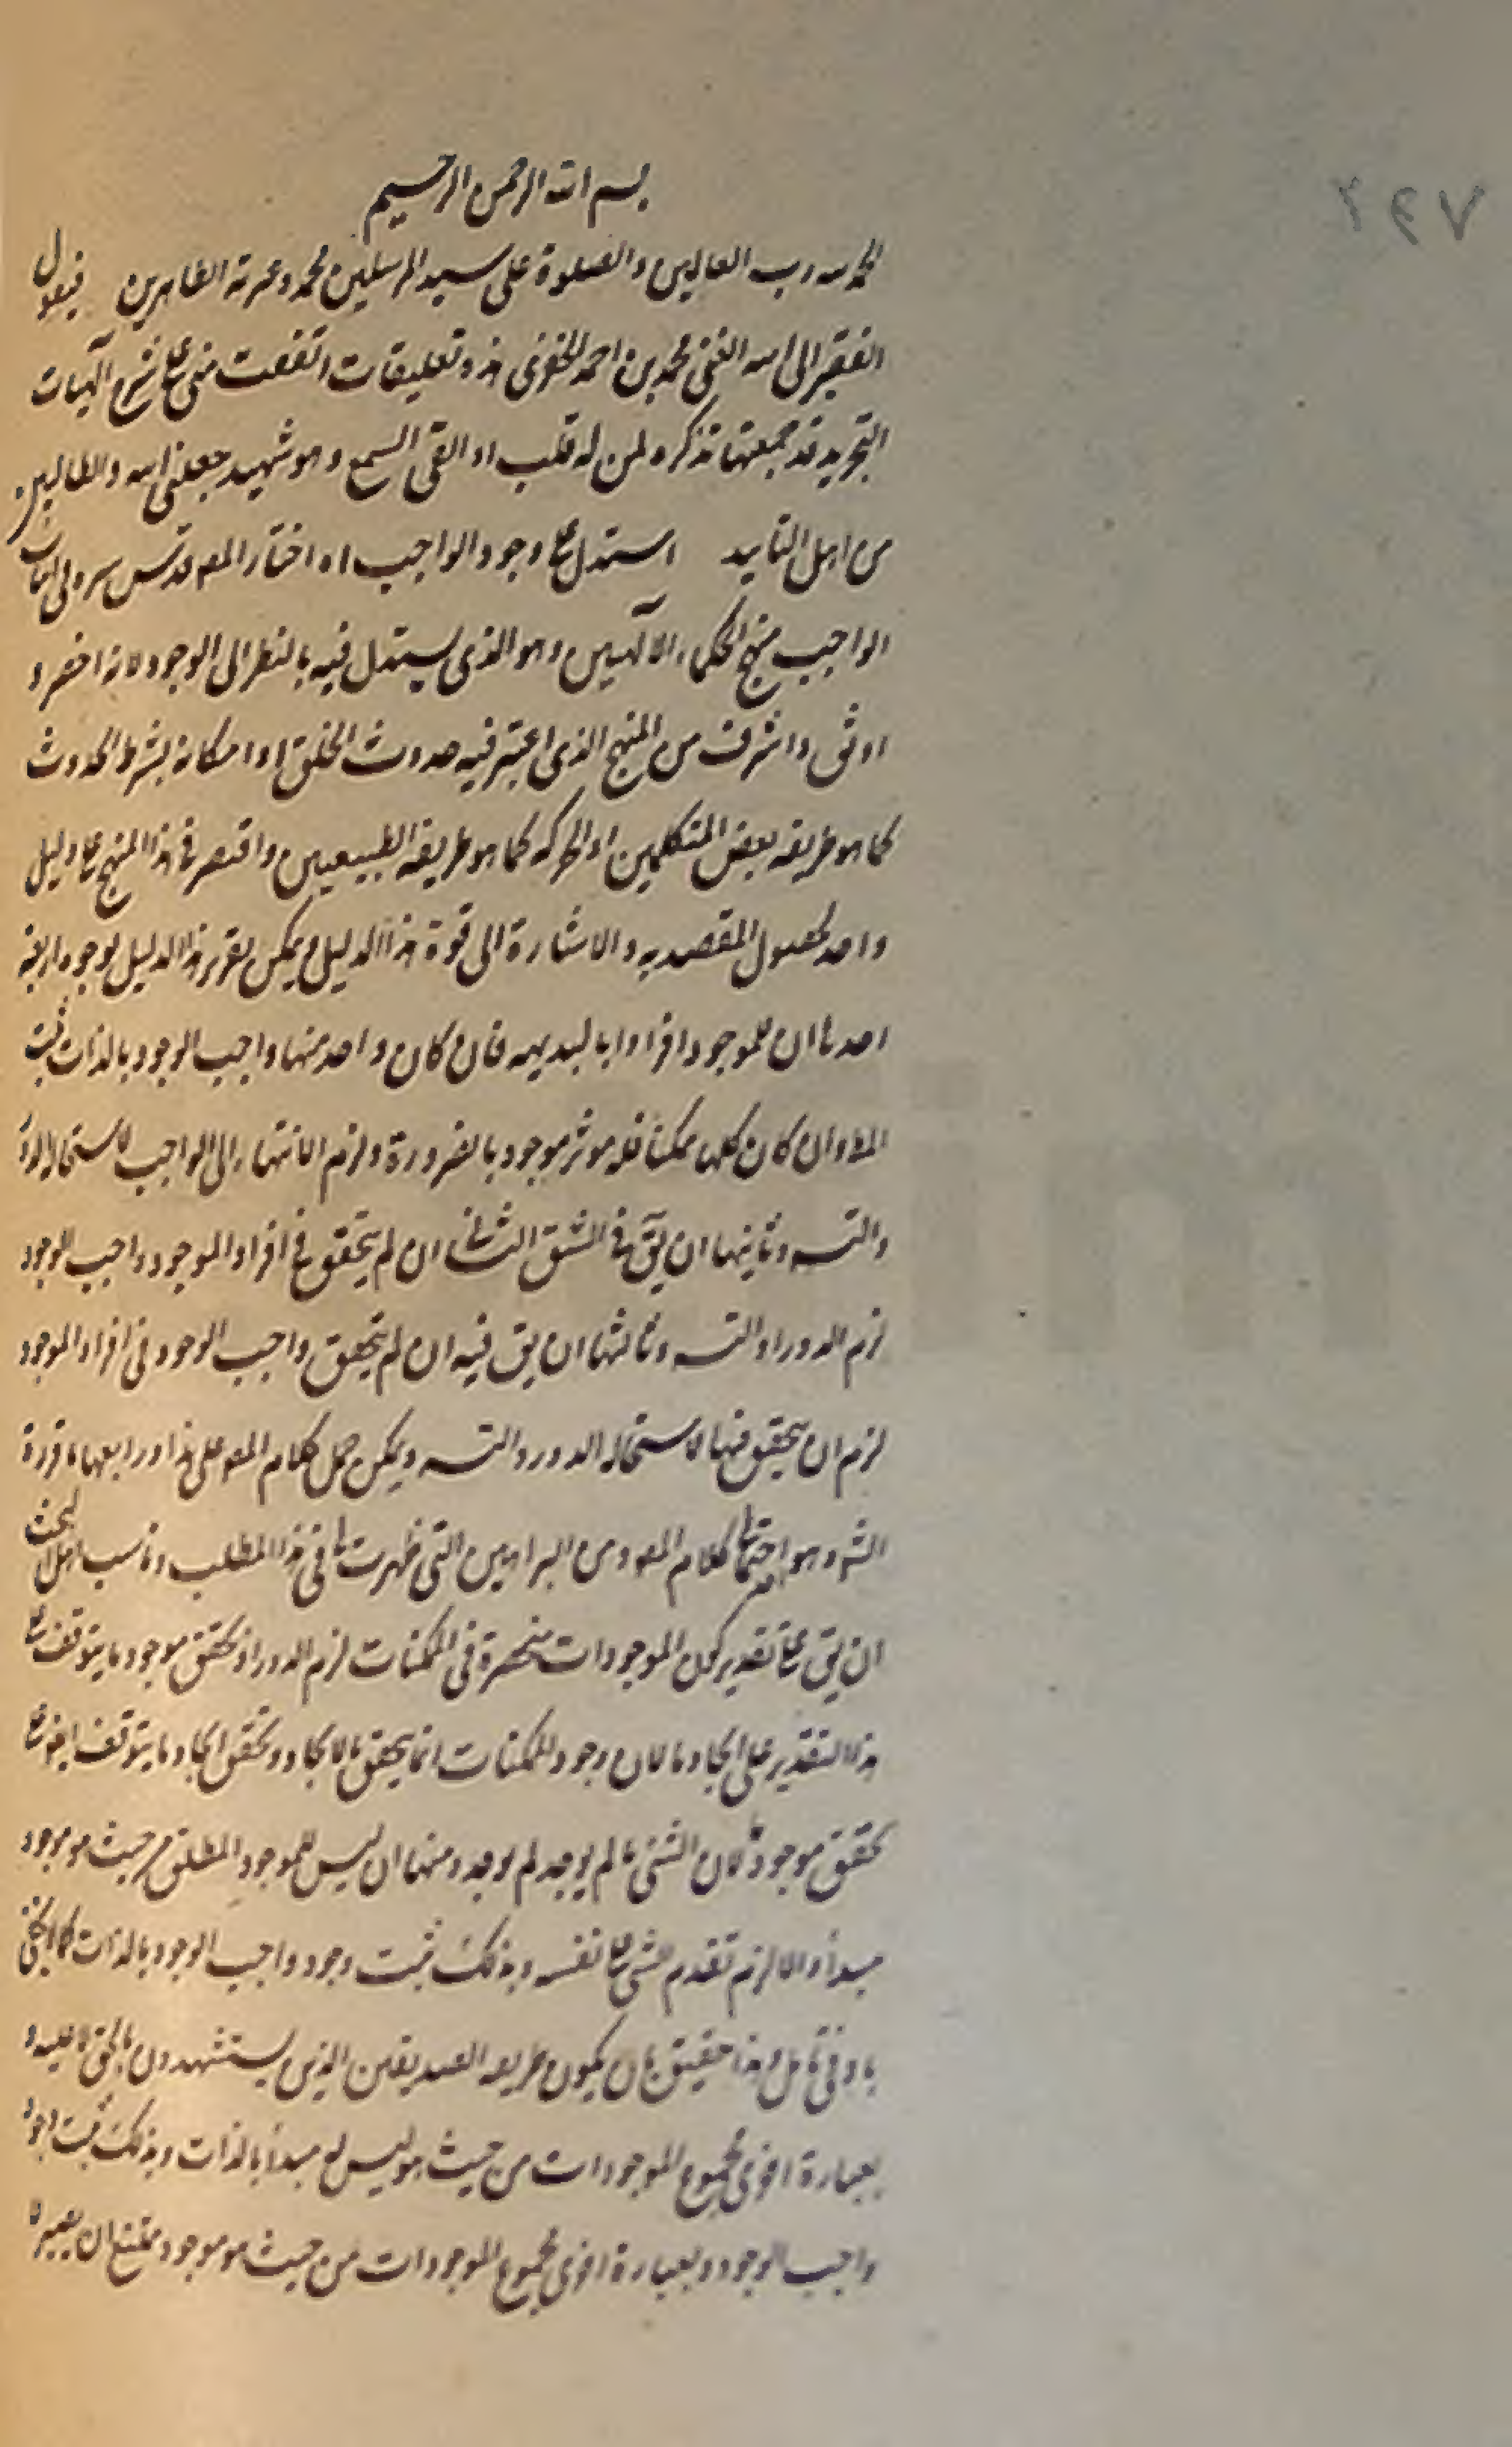 ۲۹۷
بسم الله الرحمن الرحيم
الحمد لله رب العالمين والصلوة على سيد المرسلين محمد وعترته الطاهرين فيقول
الفقير الى الله الغنى محمد بن احمد الخفرى هذه تعليقات اتفقت منى على شرح آلهيات
التجريد قد جمعتها تذكره لمن له قلب او القى السمع وهو شهيد جعلنى الله والطالبين
من اهل التاييد استدل على وجود الواجب اه اختار المصه قدس سره فى اثبات
الواجب منهج الحكماء الآلهيين وهو الذى يستدل فيه بالنظر الى الوجود لانه اخصر و
اوثق واشرف من المنهج الذى اعتبر فيه حدوث الخلق او امكانه بشرط الحدوث
كما هو طريقه بعض المتكلمين او الحركه كما هو طريقه الطبيعيين واقتصر فى هذا المنهج على دليل
واحد لحصول المقصد به والاشارة الى قوة هذا الدليل ويمكن تقرير هذا الدليل بوجوه اربعه
احدها ان للموجود افرادا بالبديهه فان كان واحد منها واجب الوجود بالذات ثبت
المط وان كان كلها ممكنا فله موثر موجود بالضرورة ولزم الانتهاء الى الواجب لاستحاله الدور
والتسه وثانيها ان يق فى الشق الثانى ان لم يتحقق فى افراد الموجود واجب الوجود
لزم الدور او التسه وثالثها ان يق فيه ان لم يتحقق واجب الوجود فى افراد الموجود
لزم ان يتحقق فيها لاستحاله الدور والتسه ويمكن حمل كلام المصه على هذا ورابعها ما قرره
الشه وهو احتمالها كلام المصه ومن البراهين التى ظهرت لها فى هذا المطلب وناسب اهل البحث
ان يق على تقدير كون الموجودات منحصرة فى الممكنات لزم الدور اذ تحقق موجود ما يتوقف على
هذا التقدير على ايجاد ما لان وجود الممكنات انما يتحقق بالايجاد وتحقق ايجاد ما يتوقف ايضا على
تحقق موجود ما لان الشئ ما لم يوجد لم يوجد ومنها ان ليس للموجود المطلق من حيث هو موجود
مبدأ والا لزم تقدم الشى على نفسه وبذلك ثبت وجود واجب الوجود بالذات كما لا يخفى
بادنى تامل وهذا حقيق بان يكون طريقه الصديقين الذين يستشهدون بالحق لا عليه و
بعبارة اخرى مجموع الموجودات من حيث هو ليس له مبدأ بالذات وبذلك ثبت وجود
واجب الوجود وبعبارة اخرى مجموع الموجودات من حيث هو موجود ممتنع ان يصير لا